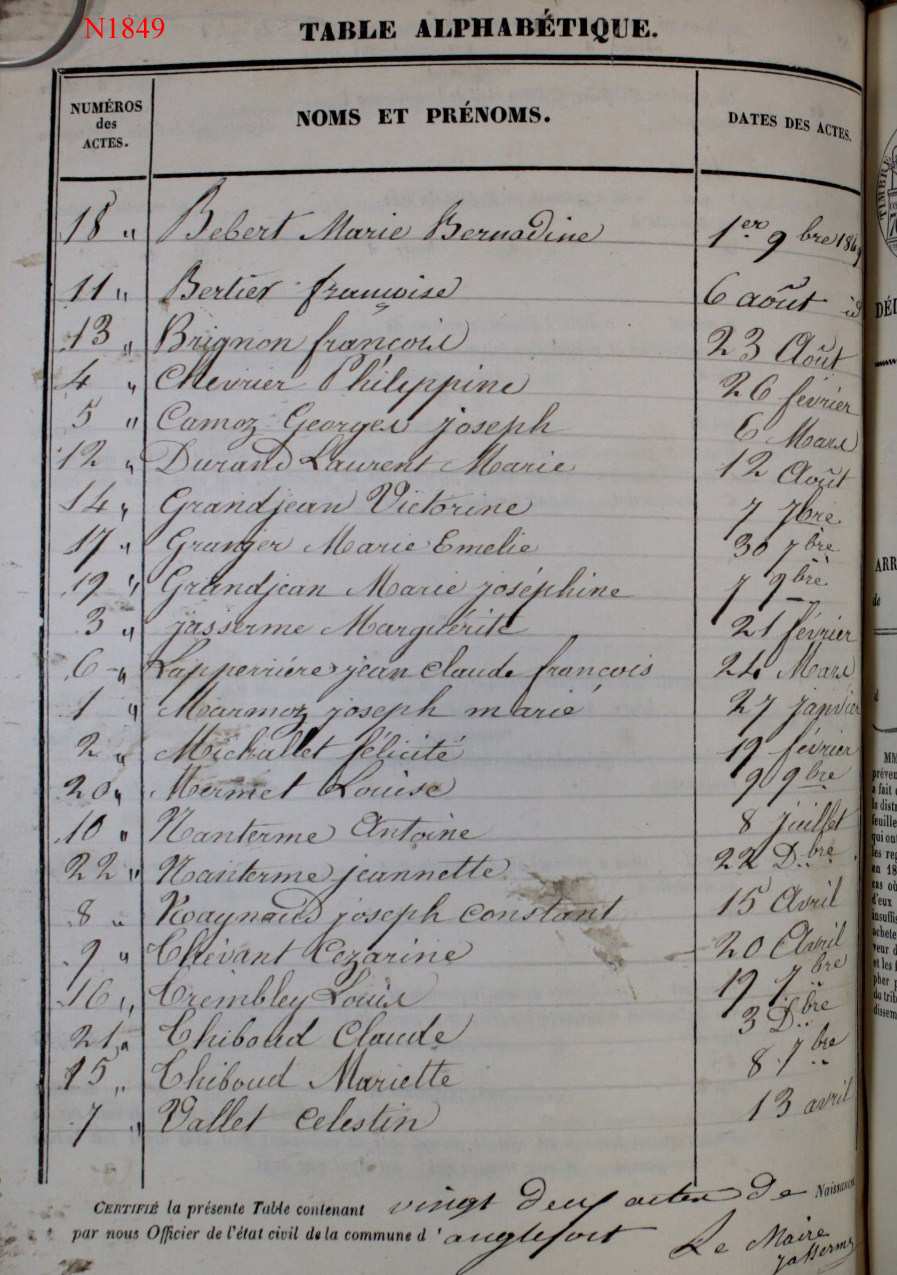 N1849
TABLE ALPHABÉTIQUE.
NUMÉROS des ACTES. NOMS ET PRÉNOMS. DATES DES ACTES.
18 " Bebert Marie Bernadine 1er 9bre 1849
11 " Bertier françoise 6 août id
13 " Brignon françois 23 Août
4 " Chevrier Phileppine 26 février
5 " Camoz Georges joseph 6 Mars
12 " Durand Laurent Marie 12 Août
14 " Grandjean Victorine 7 7bre
17 " Granger Marie Emelie 30 7bre
19 " Grandjean Marie joséphine 7 9bre
3 " jasserme Marguérite 21 février
6 " Lapperrière jean claude françois 24 Mars
1 " Marmoz joseph marie 27 janvier
2 " Michallet félicité 19 février
20 " Mermet Louise 9 9bre
10 " Nanterme Antoine 8 juillet
22 " Nanterme jeannette 22 Dbre
8 " Raynaud joseph constant 15 Avril
9 " Thévant Cezarine 20 Avril
16 " Trembley Louis 19 7bre
21 " Thiboud Claude 3 Dbre
15 " Thiboud Mariette 8 7bre
7 " Vallet Celestin 13 avril
CERTIFIÉ la présente Table contenant vingt deux actes de Naissance
par nous Officier de l'état civil de la commune d'anglefort
Le Maire
jasserme
TIMBRE